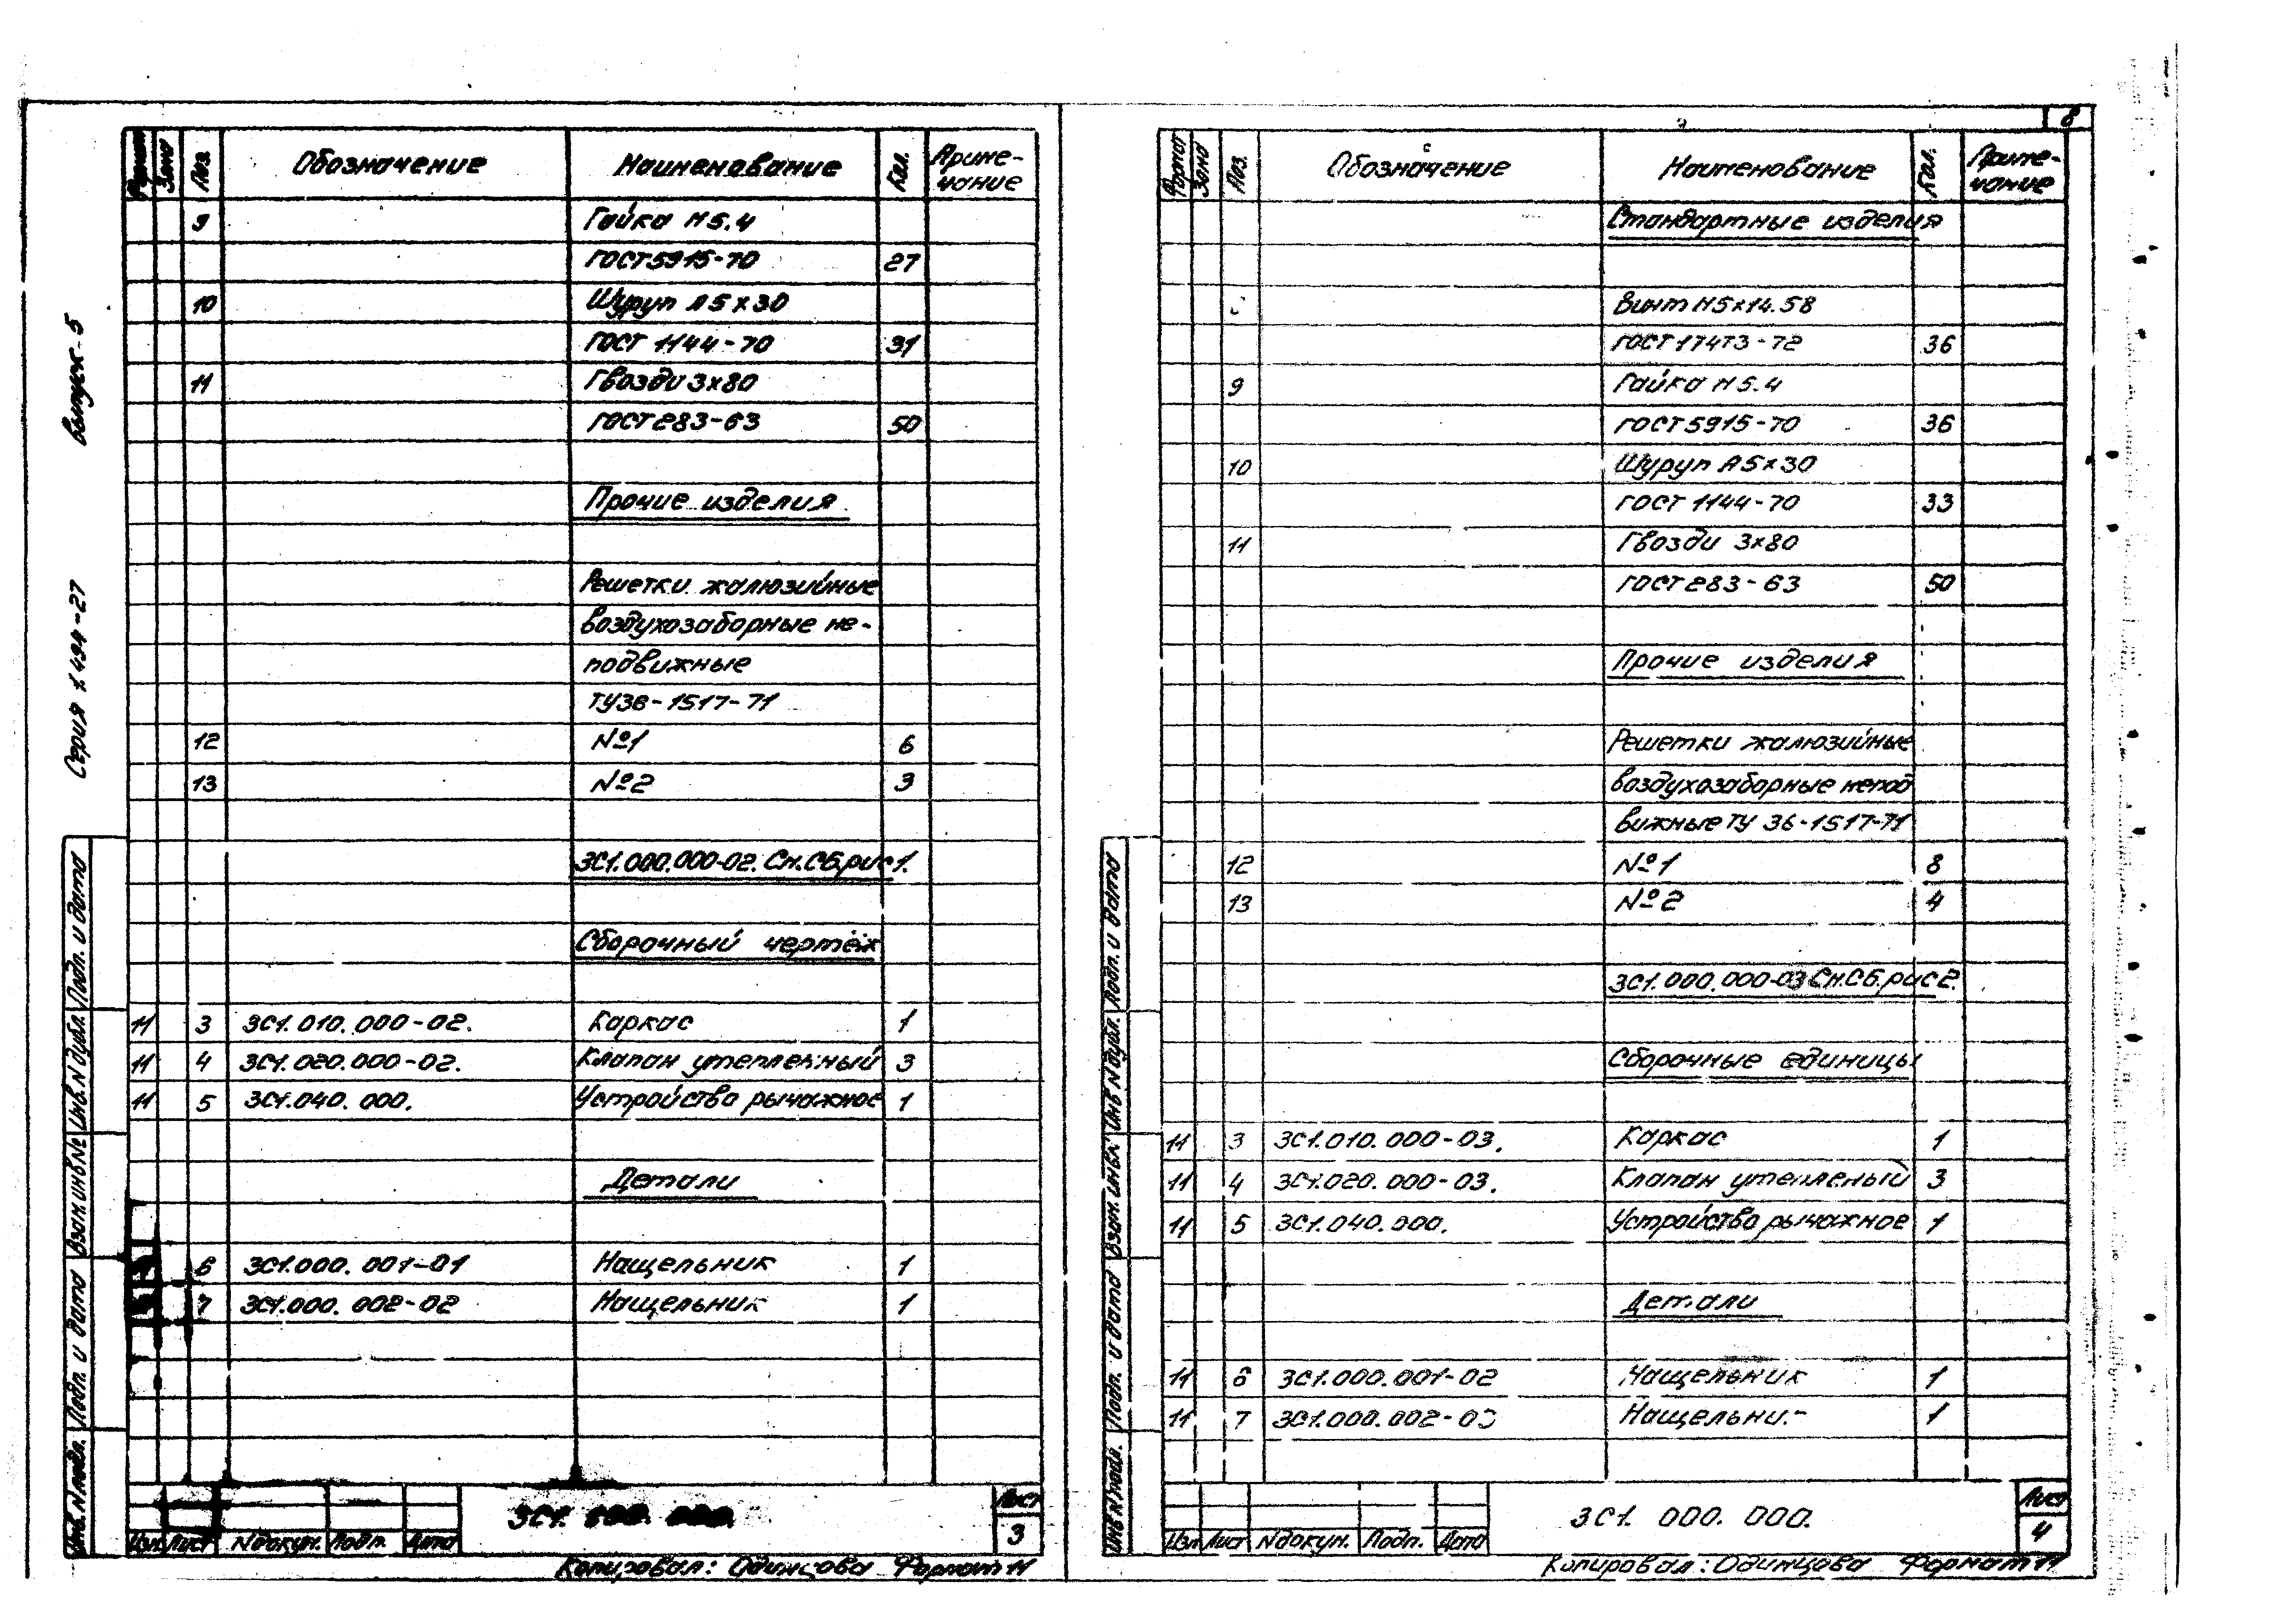 8
Выпуск-5
Серия 1.494-27
Формат Зона Поз. Обозначение Наименование Кол. Приме-
чание
9 Гайка М5.4
ГОСТ5915-70 27
10 Шуруп А5х30
ГОСТ 1144-70 31
11 Гвозди 3х80
ГОСТ283-63 50
Прочие изделия
Решетки жалюзийные
воздухозаборные не-
подвижные
ТУ36-1517-71
12 №1 6
13 №2 3
ЗС1.000.000-02. См.Сб.рис1.
Сборочный чертёж
11 3 ЗС1.010.000-02. Каркас 1
11 4 ЗС1.020.000-02. Клапан утепленный 3
11 5 ЗС1.040.000. Устройство рычажное 1
Детали
6 ЗС1.000.001-01 Нащельник 1
7 ЗС1.000.002-02 Нащельник 1
Инв.N подл. Подп. и дата Взам.инв№ Инв.N дубл. Подп. и дата
Изм. Лист Nдокум. Подп. Дата
ЗС1. 000. 000.
Лист
3
Копировал: Одинцова Формат 11
Формат Зона Поз. Обозначение Наименование Кол. Приме-
чание
Стандартные изделия
Винт М5х14.58
ГОСТ17473-72 36
9 Гайка М5.4
ГОСТ5915-70 36
10 Шуруп А5х30
ГОСТ 1144-70 33
11 Гвозди 3х80
ГОСТ283-63 50
Прочие изделия
Решетки жалюзийные
воздухозаборные непод
вижные ТУ 36-1517-71
12 №1 8
13 №2 4
ЗС1.000.000-03 См.Сб.рис2.
Сборочные единицы
11 3 ЗС1.010.000-03. Каркас 1
11 4 ЗС1.020.000-03. Клапан утепленый 3
11 5 ЗС1.040.000. Устройство рычажное 1
Детали
11 6 ЗС1.000.001-02 Нащельник 1
11 7 ЗС1.000.002-03 Нащельник 1
Инв N подл. Подп. и дата Взам. инв.№ Инв N дубл. Подп. и дата
Изм Лист Nдокум. Подп. Дата
ЗС1. 000. 000.
Лист
4
Копировал: Одинцова Формат 11